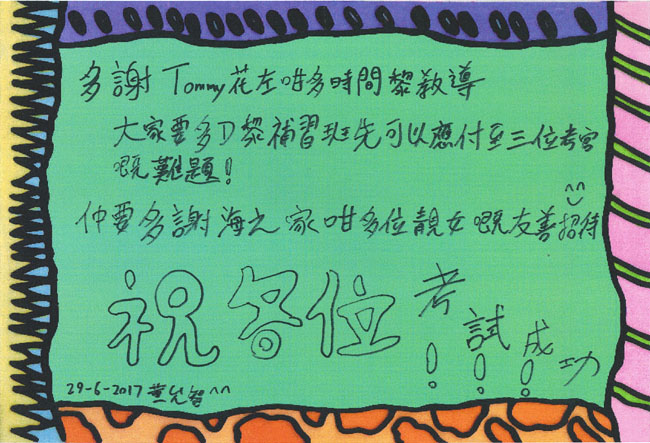 多謝 Tommy 花左咁多時間黎教導
大家要多D黎補習班先可以應付到三位考官
嘅難題!
^^
仲要多謝海之家咁多位靚女嘅友善招待
祝各位考試成功
!!!
29-6-2017 葉 ^^